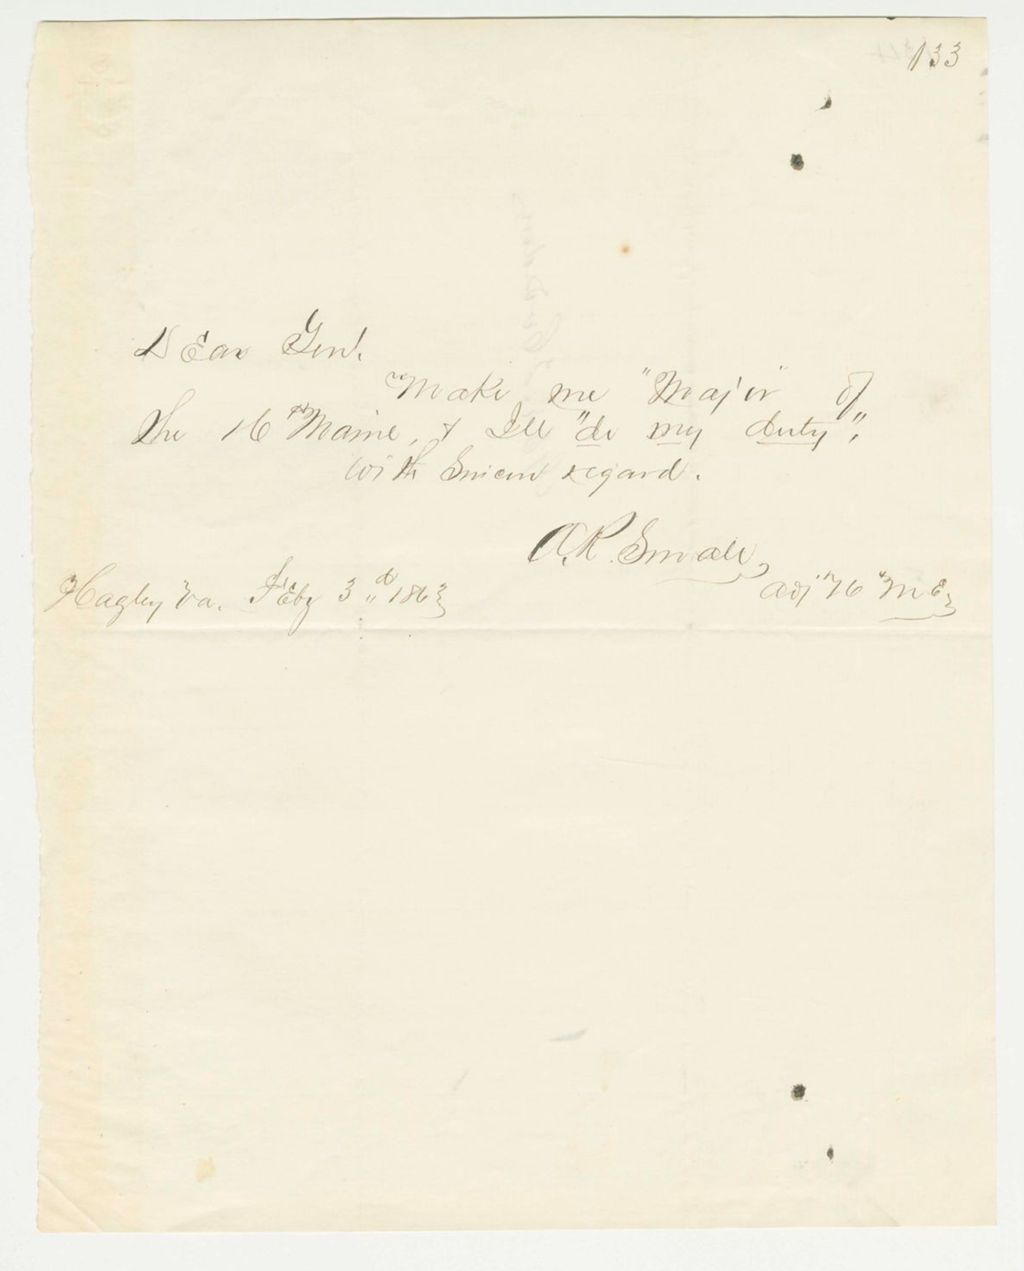 133
Dear Gen'.
Make me "Major" of
the 16th Maine, & Ill "do my duty".
with Sincere regard.
A. R. Small,
Adjt 16th ME
Hagley Va. Feby 3d 1863